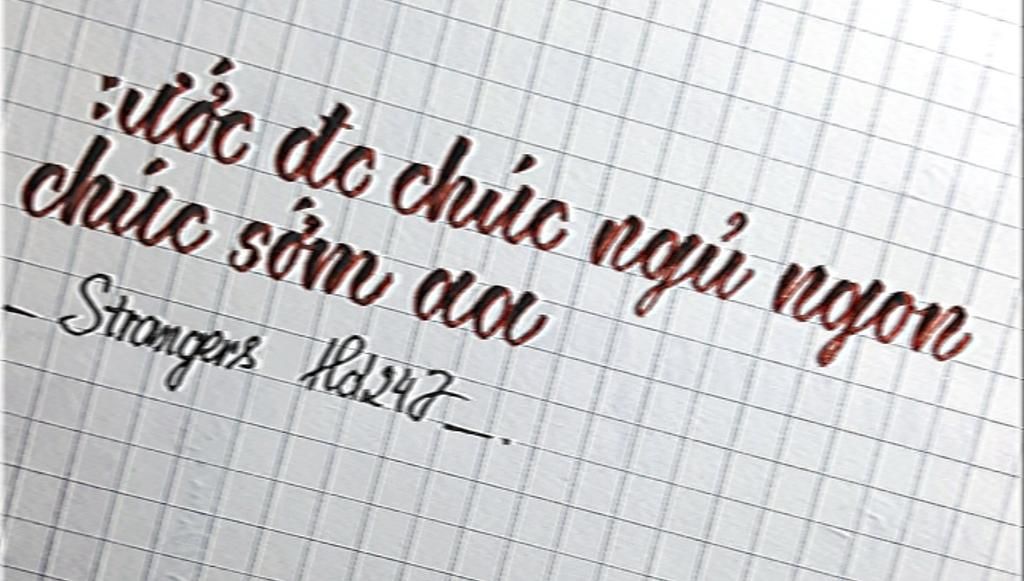 :ước đc chúc ngủ ngon
chúc sớm aa
_ Strangers Hd247_.